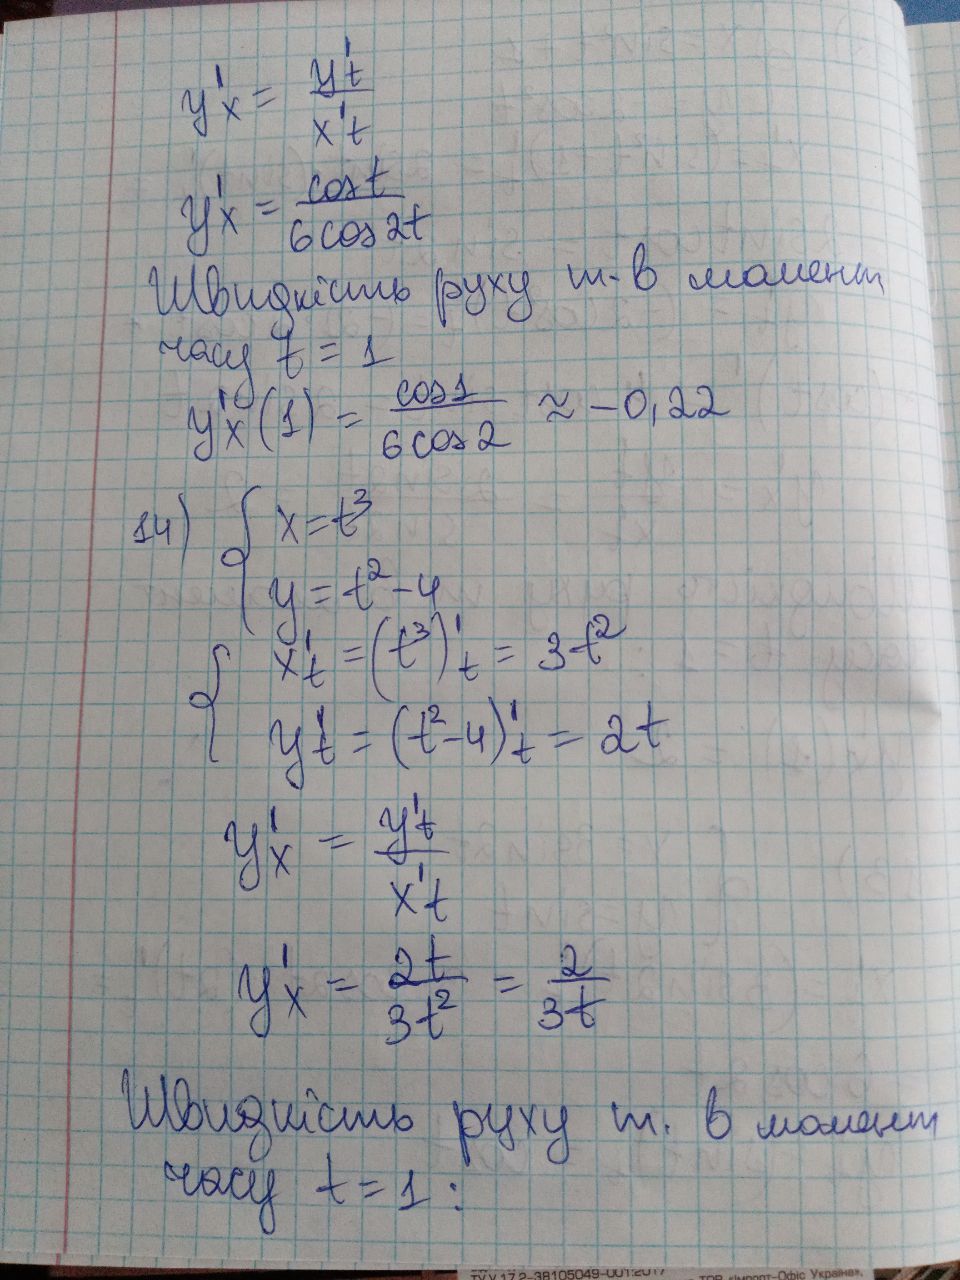 y'x = y't / x't
y'x = cos t / 6 cos 2t
Швидкість руху т. в момент
часу t = 1
y'x (1) = cos 1 / 6 cos 2 ≈ -0,22
14) { x = t³
y = t² - 4
{ x't = (t³)'t = 3t²
y't = (t² - 4)'t = 2t
y'x = y't / x't
y'x = 2t / 3t² = 2 / 3t
Швидкість руху т. в момент
часу t = 1 :
ТУ У 17.2-38105049-001:2017
ТОВ «Імпорт-Офіс Україна»,